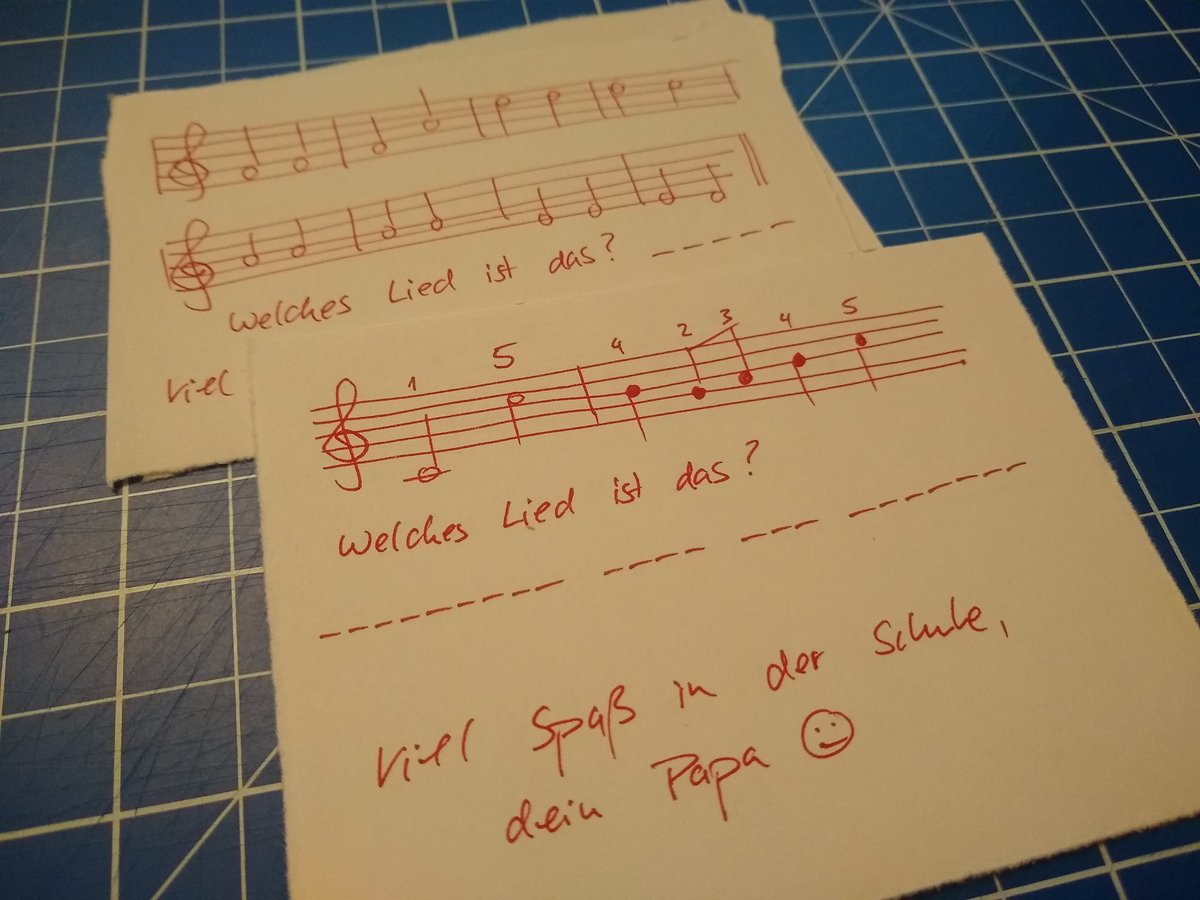 Welches Lied ist das? _ _ _ _ _
Viel
1 5 4 2 3 4 5
Welches Lied ist das?
_ _ _ _ _ _ _ _ _ _ _ _ _ _ _ _ _ _ _ _ _ _ _ _
Viel Spaß in der Schule,
dein Papa ☺